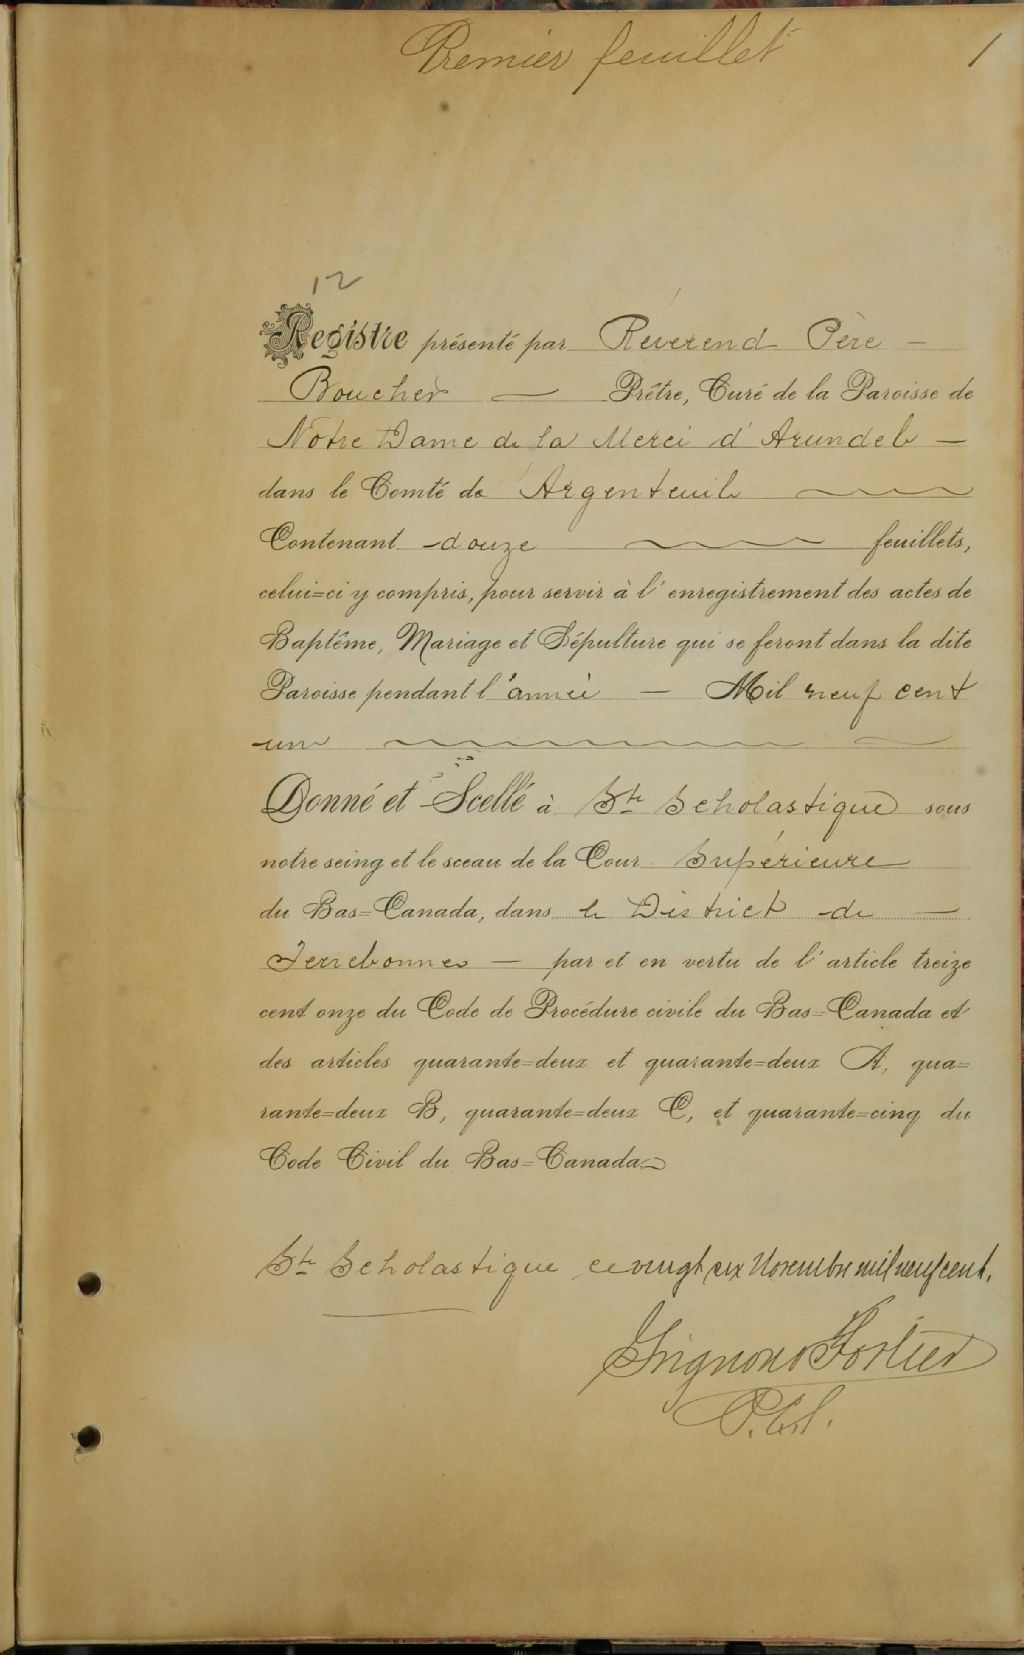 Premier feuillet 1
12
Registre présenté par Réverend Père —
Boucher — Prêtre, Curé de la Paroisse de
Notre Dame de la Merci d'Arundel —
dans le Comté de Argenteuil
Contenant douze feuillets,
celui=ci y compris, pour servir à l'enregistrement des actes de
Baptême, Mariage et Sépulture qui se feront dans la dite
Paroisse pendant l'année — Mil neuf cent
un
Donné et Scellé à Ste Scholastique sous
notre seing et le sceau de la Cour Supérieure
du Bas=Canada, dans le District de —
Terrebonne — par et en vertu de l'article treize
cent onze du Code de Procédure civile du Bas=Canada et
des articles quarante=deux et quarante=deux A, qua=
rante=deux B, quarante=deux C, et quarante=cinq du
Code Civil du Bas=Canada.
Ste Scholastique ce vingt six Novembre mil neuf cent.
Grignon & Fortier
P.C.S.